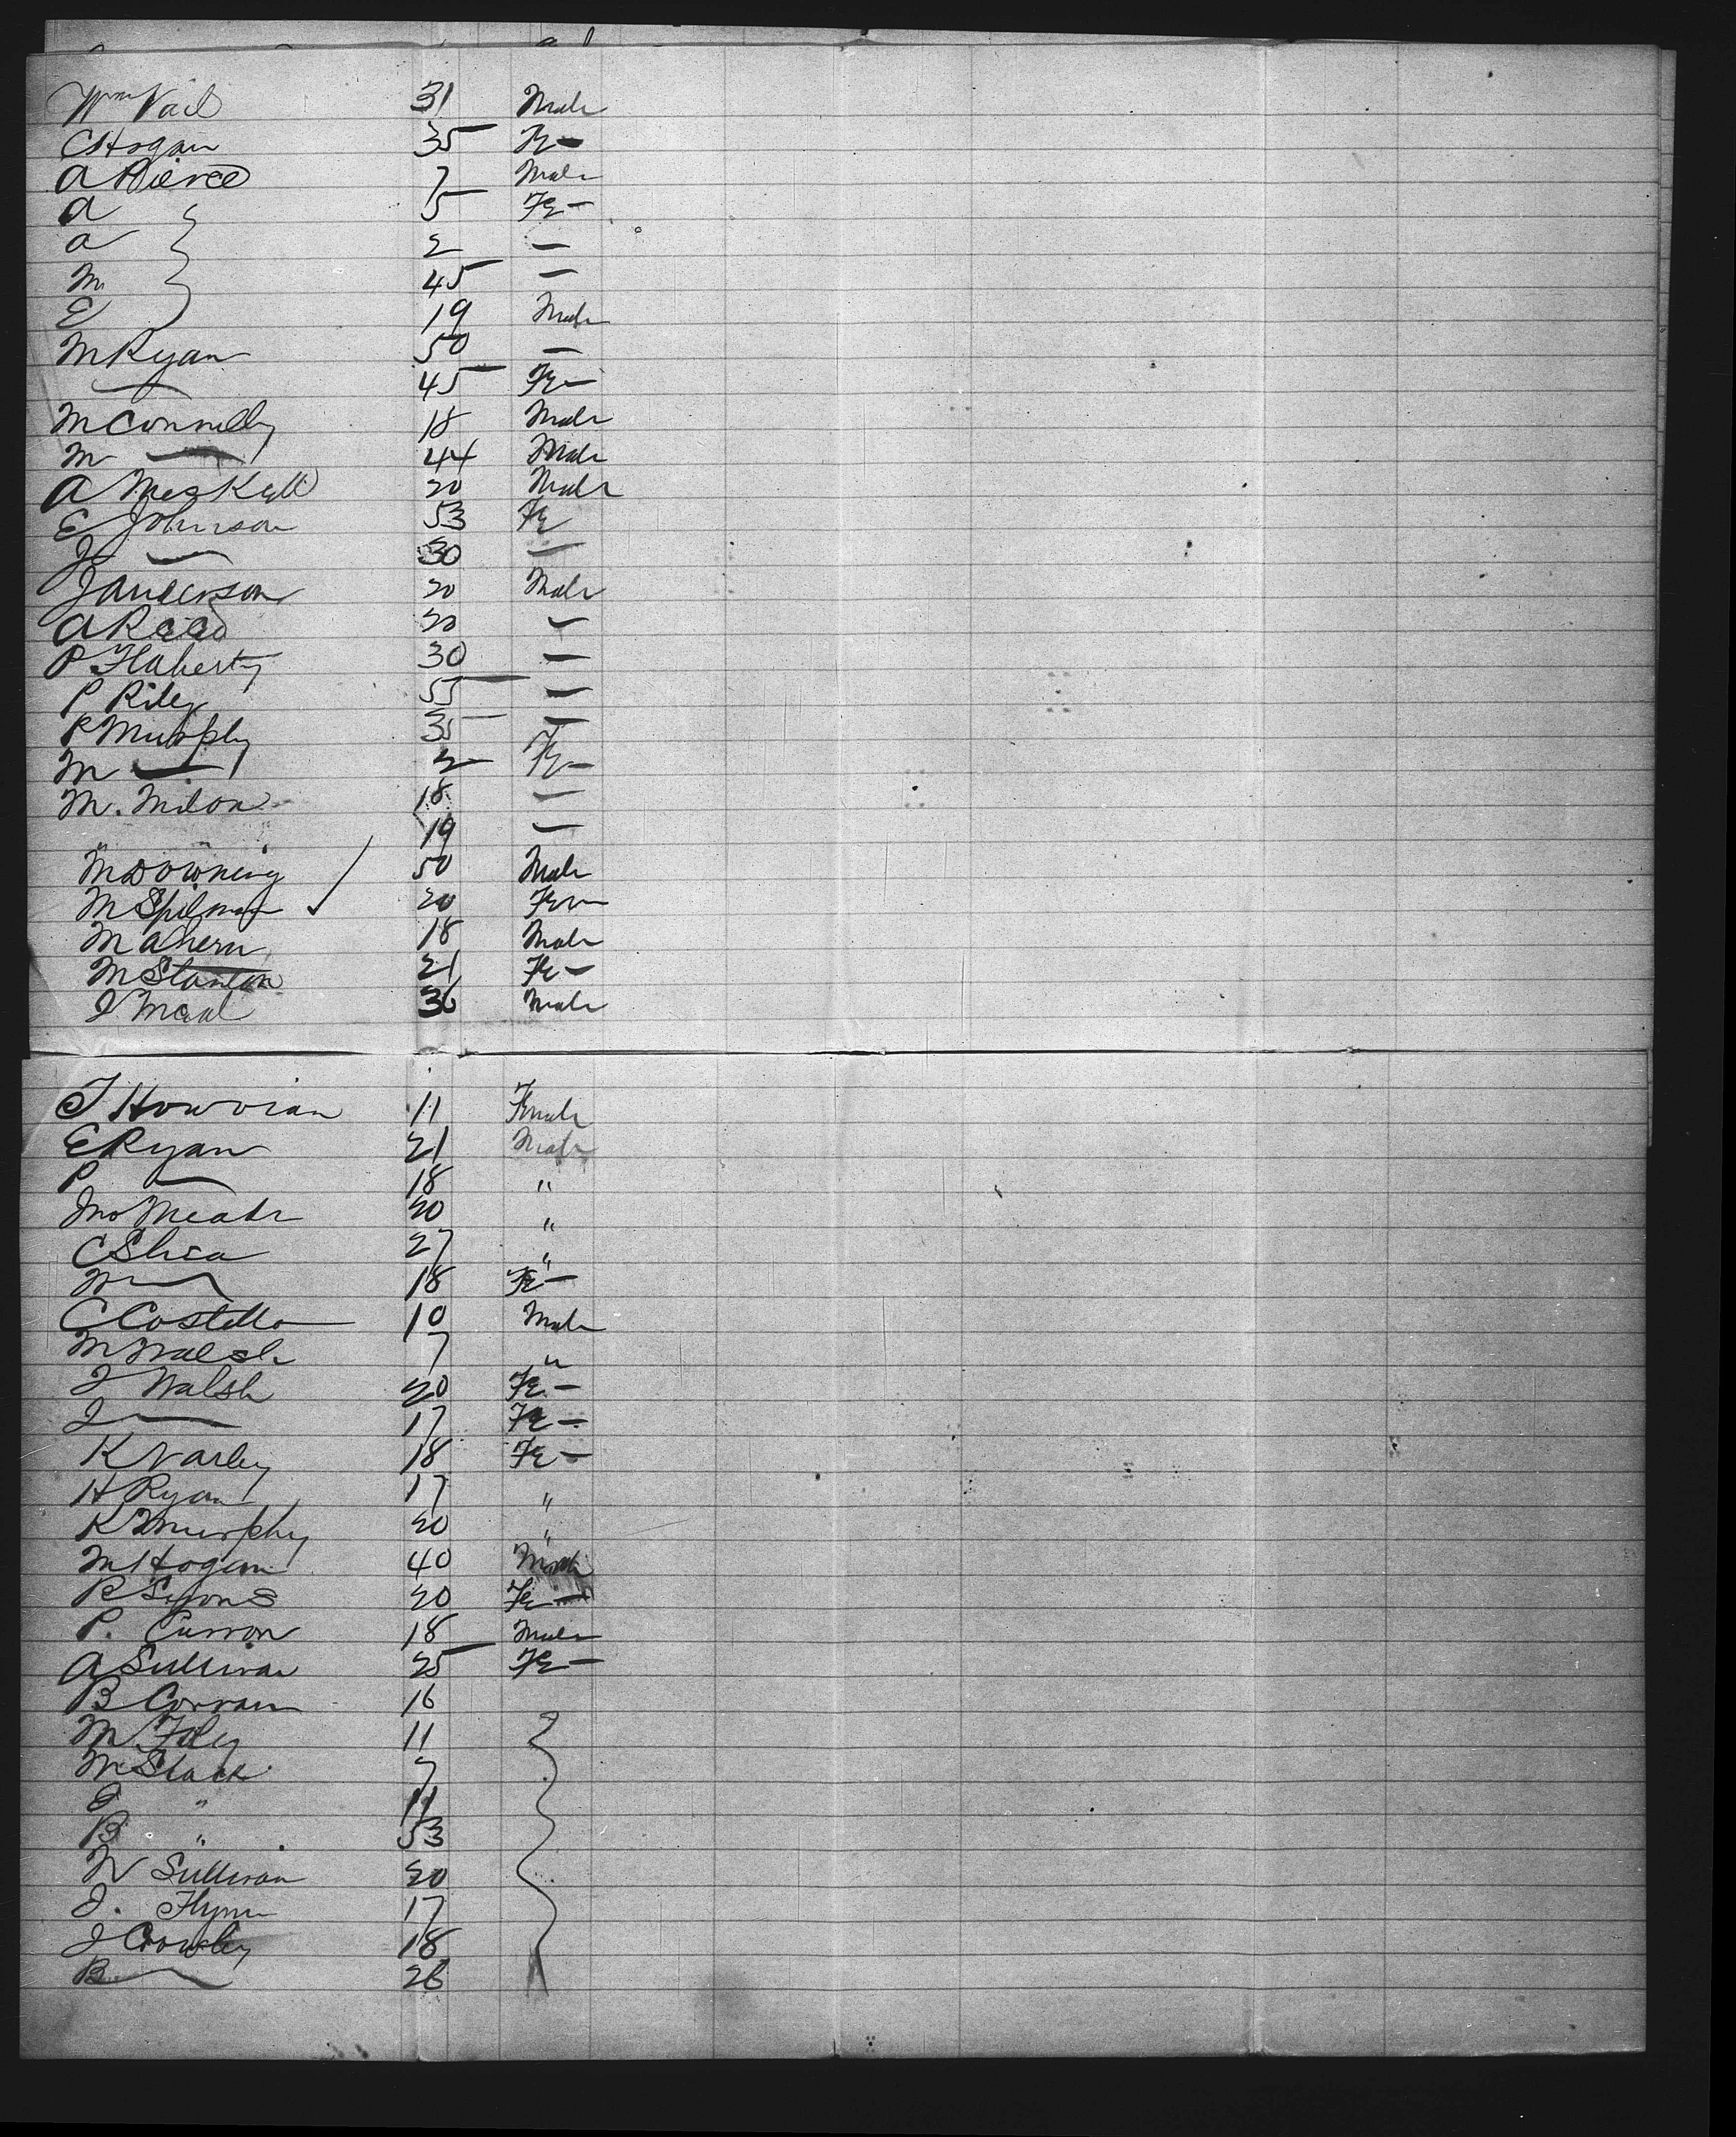 Wm Vail 31 Male
C Hogan 35 Fe —
A Pierce 7 Male
A 5 Fe —
a 2 —
M 45 —
E 19 Male
M Ryan 50 —
— 45 Fe —
M Connelly 18 Male
M — 44 Male
A Meskell 20 Male
E Johnson 53 Fe
J — 30 —
J Anderson 20 Male
A Reed 20 —
P Flaherty 30 —
P Riley 55 —
P Murphy 35 —
M — 2 Fe —
M. 18 —
19 —
M Downing 50 Male
M Spilman 20 Fem
M Ahern 18 Male
M Stanton 21 Fe —
J 36 Male
T 11 Female
E Ryan 21 Male
P — 18 "
Jno Meade 20 "
C Shea 27 "
M — 18 Fe —
C Costello 10 Male
M Walsh 7 "
J Walsh 20 Fe —
J — 17 Fe —
K Varley 18 Fe —
H Ryan 17 "
K Murphy 20 "
M Hogan 40 Male
20 Fe —
P. Curran 18 Male
A Sullivan 25 Fe —
B 16
M Foley 11
M Slack 7
" 11
B " 53
N Sullivan 20
J. Flynn 17
J Crowley 18
B — 26